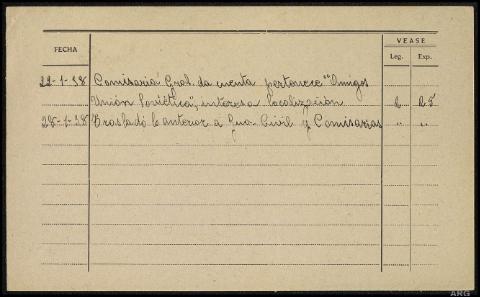 VEASE
FECHA
Leg. Exp.
22-1-38 Comisaria Gral. da cuenta pertenece "Amigos
Unión Soviética", interesa localización
28-1-38 Traslado anterior a Gua. Civil y Comisarias " "
ARG